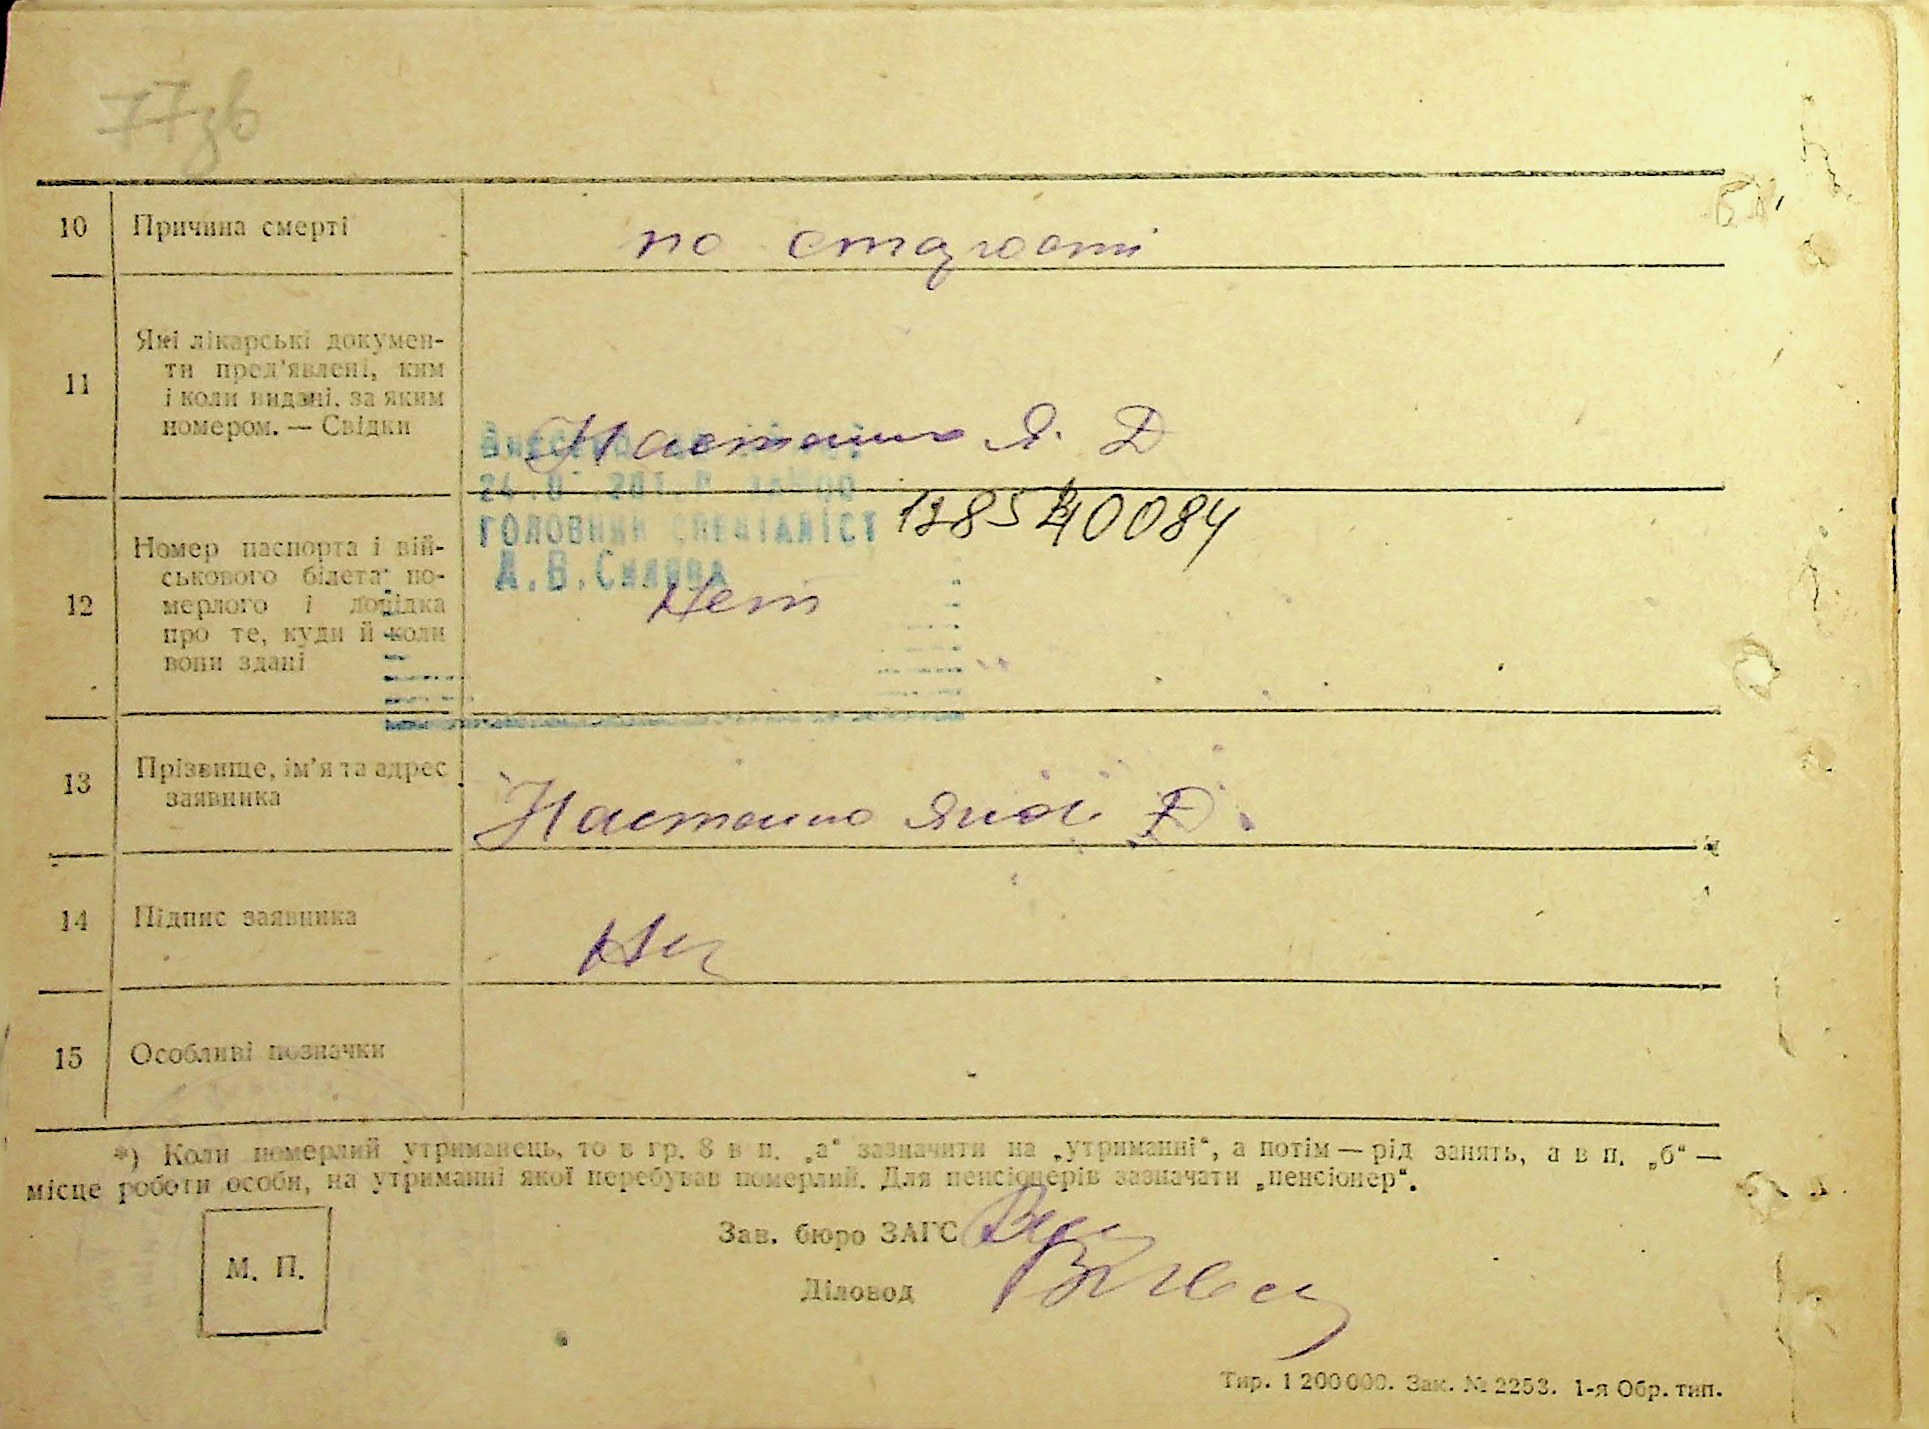 77зв
10 Причина смерті
по старості
11 Які лікарські докумен-
ти пред'явлені, ким
і коли видані, за яким
номером. — Свідки
Я. Д
ГОЛОВНИЙ СПЕЦІАЛІСТ
А.В.
12 Номер паспорта і вій-
ськового білета по-
мерлого і довідка
про те, куди й коли
вони здані
Нет
13 Прізвище, ім'я та адрес
заявника
Д.
14 Підпис заявника
15 Особливі позначки
*) Коли померлий утриманець, то в гр. 8 в п. „а“ зазначити на „утриманні“, а потім — рід занять, а в п. „б“ —
місце роботи особи, на утриманні якої перебував померлий. Для пенсіонерів зазначати „пенсіонер“.
Зав. бюро ЗАГС
М. П.
Діловод
Тир. 1 200 000. Зак. № 2253. 1-я Обр. тип.